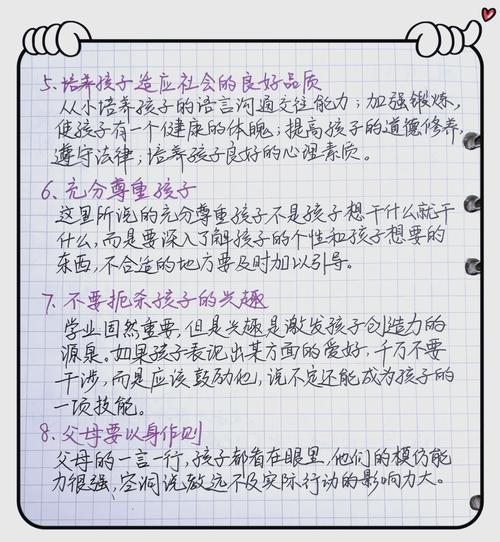 5.培养孩子适应社会的良好品质
从小培养孩子的语言沟通交往能力；加强锻炼，
使孩子有一个健康的体魄；提高孩子的道德修养，
遵守法律；培养孩子良好的心理素质。
6.充分尊重孩子
这里所说的充分尊重孩子不是孩子想干什么就干
什么，而是要深入了解孩子的个性和孩子想要的
东西，不合适的地方要及时加以引导。
7.不要扼杀孩子的兴趣
学业固然重要，但是兴趣是激发孩子创造力的
源泉。如果孩子表现出某方面的爱好，千万不要
干涉，而是应该鼓励他，说不定还能成为孩子的
一项技能。
8.父母要以身作则
父母的一言一行，孩子都看在眼里，他们的模仿能
力很强，空洞说教远不及实际行动的影响力大。